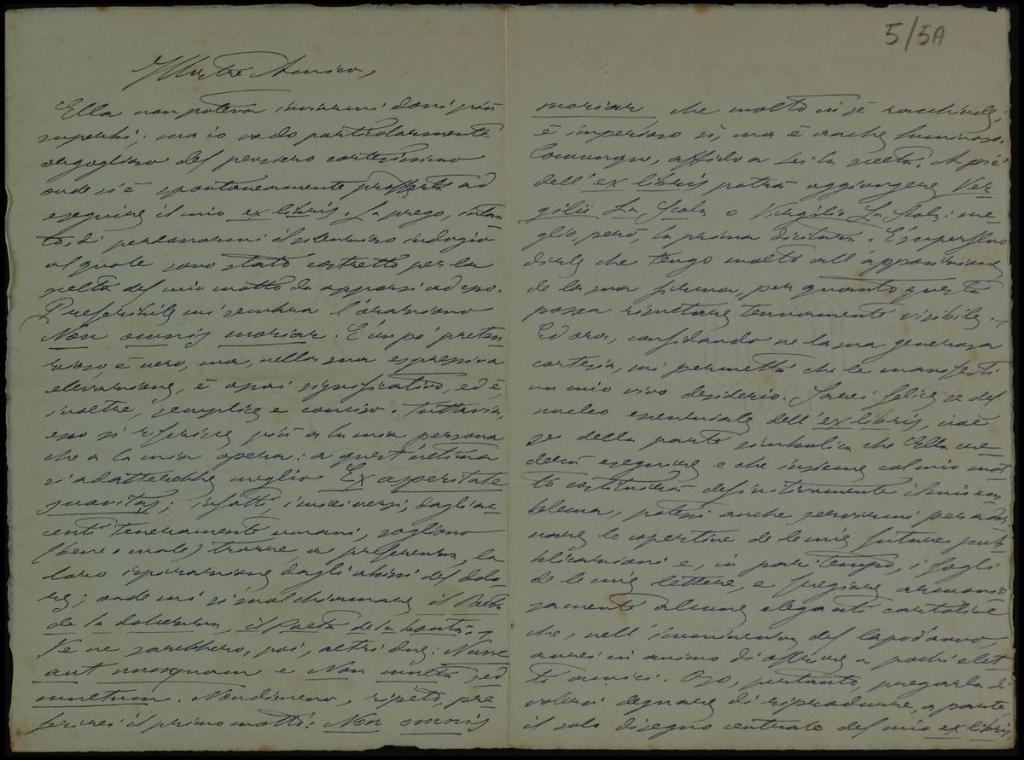 5/5A
Illustre Amico,
Ella non poteva inviarmi doni più
superbi; ma io vado particolarmente
orgoglioso del pensiero cortesissimo
onde si è spontaneamente profferto ad
eseguire il mio ex libris. La prego, intan-
to, di perdonarmi il indugio
al quale sono stato costretto per la
scelta del mio motto da apporsi ad esso.
Preferibile mi sembra l'oraziano
Non omnis moriar. È un po' preten-
zioso è vero, ma, nella sua espressiva
elevazione, è assai significativo, ed è,
inoltre, semplice e conciso. Tuttavia,
esso si riferisce più a la mia persona
che a la mia opera: a quest'ultima
si adatterebbe meglio Ex asperitate
suavitas; infatti, i miei versi, dagli ac-
centi teneramente umani, sogliono
(bene o male) trarre a preferenza, la
loro ispirazione dagli abissi del dolo-
re; onde mi si suol chiamare il Poeta
de la dolcezza, il Poeta de la bontà.
Ve ne sarebbero, poi, altri due: Nunc
aut nunquam e Non multa sed
multum. Nondimeno, ripeto, pre-
ferirei il primo motto: Non omnis
moriar che molto in sè racchiude;
è imperioso sì, ma è anche luminoso.
Comunque, affido a Lei la scelta. A piè
dell'ex libris potrà aggiungere Ver-
gilii La Scola o Virgilio La Scola: me-
glio, però, la prima dicitura. È superfluo
dirle che tengo molto all'apposizione
de la sua firma, per quanto questa
possa risultare tenuamente visibile.
Ed ora, confidando ne la sua generosa
cortesia, mi permetta che le manifesti
un mio vivo desiderio. Sarei felice se del
nucleo essenziale dell'ex libris, cioè
se della parte simbolica che Ella cre-
derà eseguire e che insieme col mio mot-
to costituirà definitivamente il mio em-
blema, potessi anche servirmi per ador-
nare le copertine de le mie future pub-
blicazioni e, in pari tempo, i fogli
de le mie lettere, e fregiare armonio-
samente alcune eleganti cartoline
che, nell'imminenza del Capodanno,
avrei in animo di offrire a pochi elet-
ti amici. Oso, pertanto, pregarla di
volersi degnare di riprodurre, a parte,
il solo disegno centrale del mio ex libris